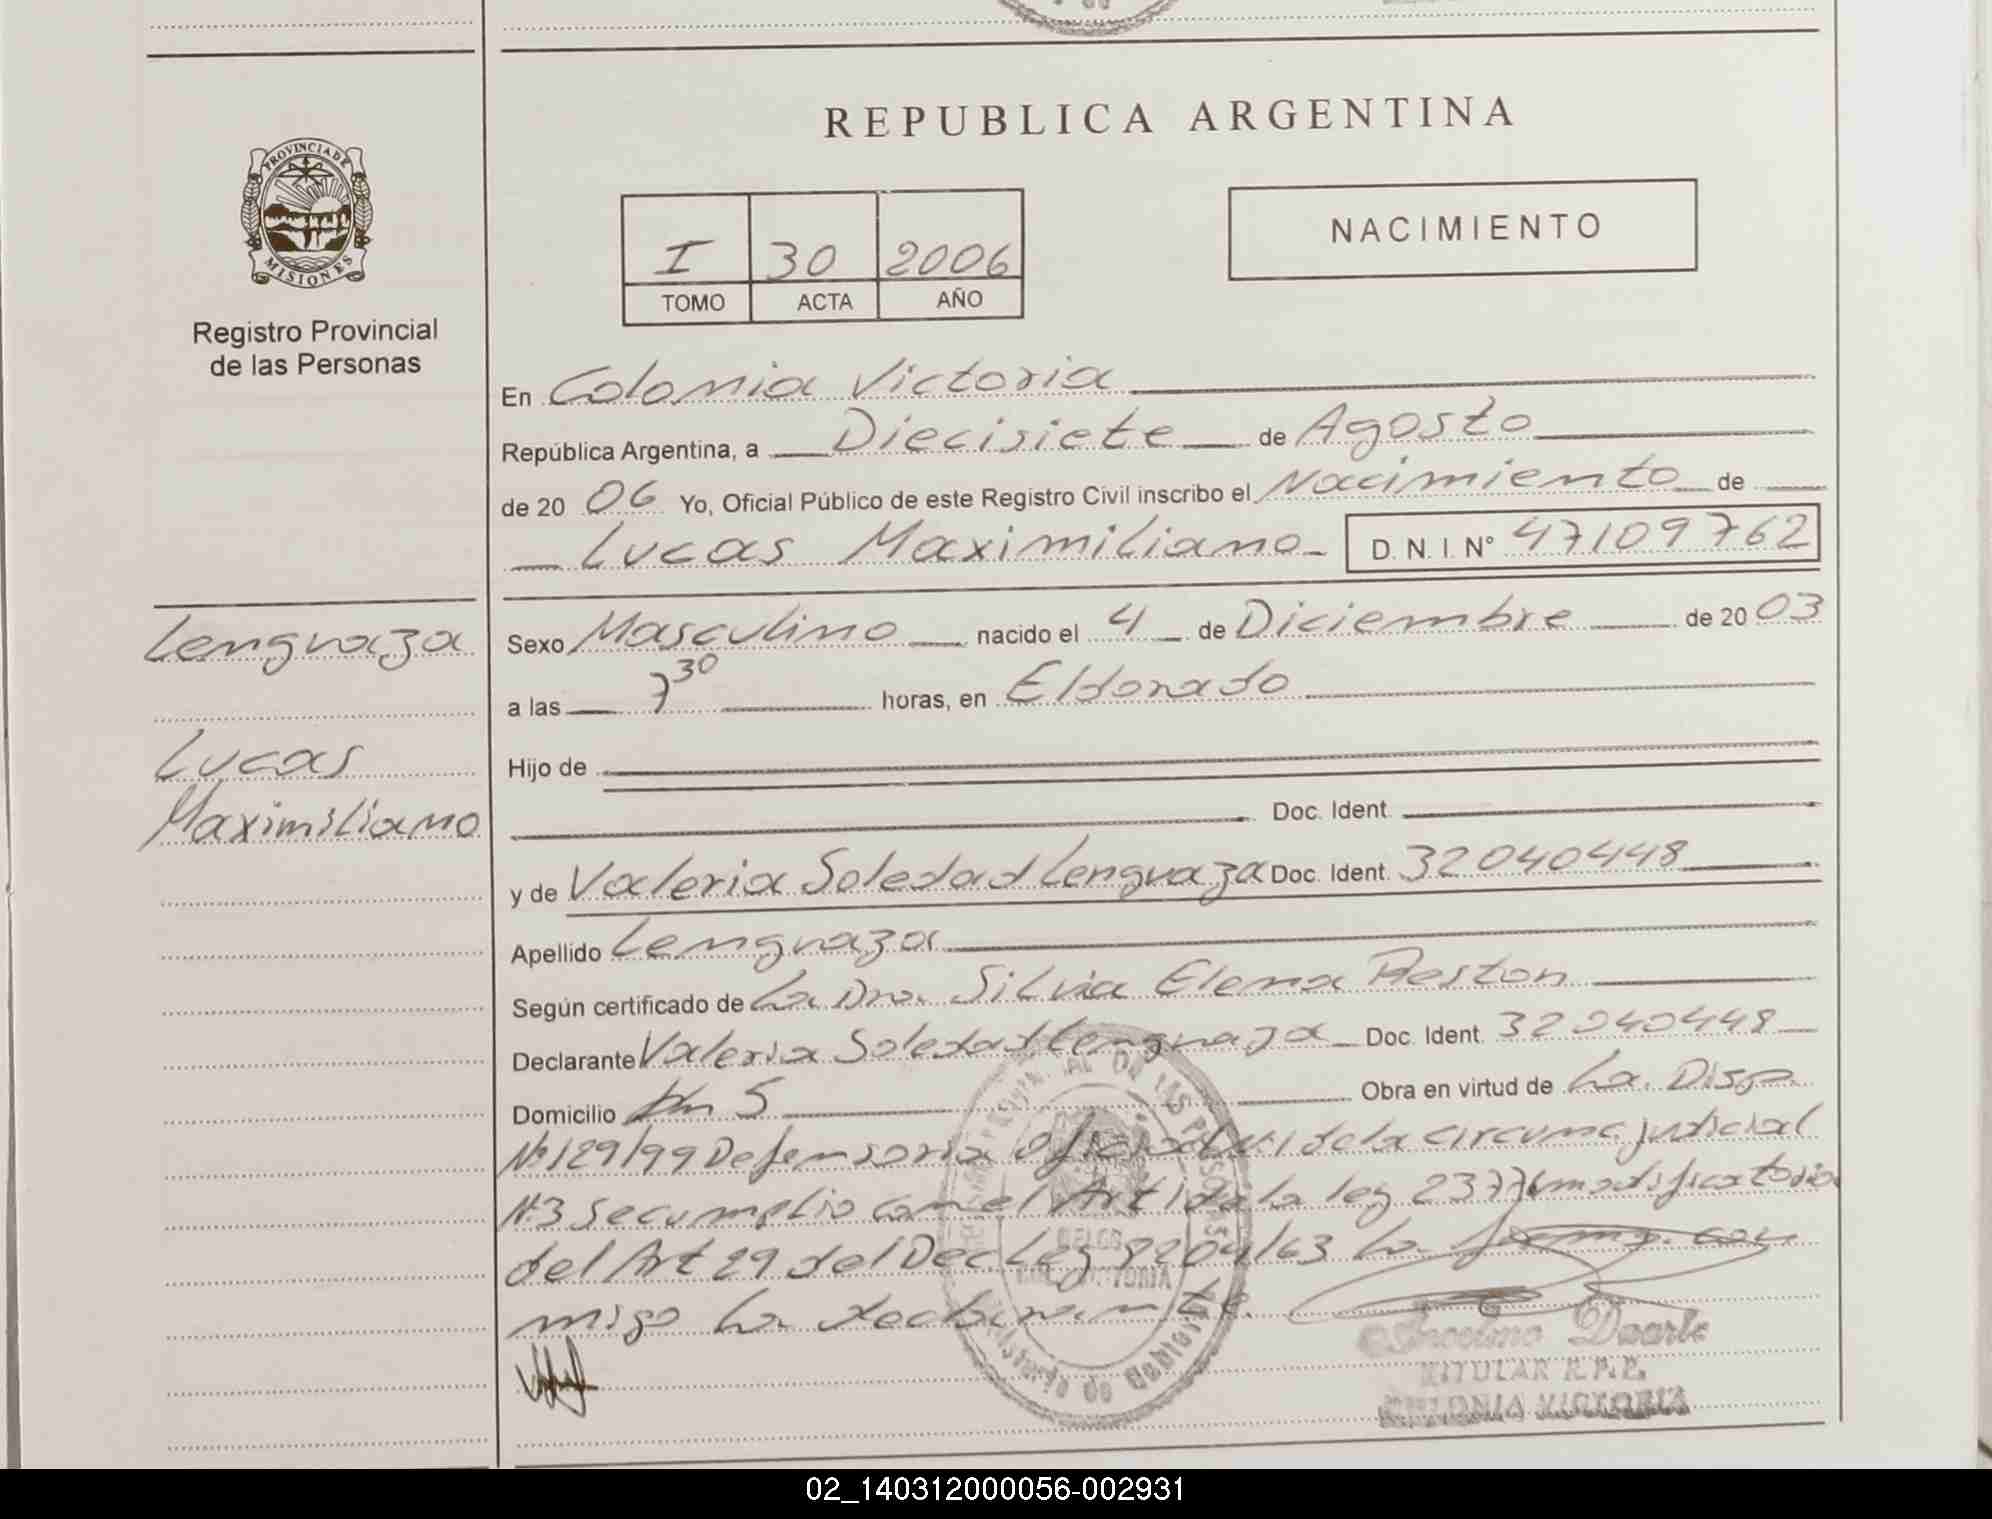 REPUBLICA ARGENTINA
PROVINCIA DE MISIONES
Registro Provincial
de las Personas
I 30 2006
TOMO ACTA AÑO
NACIMIENTO
En Colonia Victoria
República Argentina, a Diecisiete de Agosto
de 20 06 Yo, Oficial Público de este Registro Civil inscribo el Nacimiento de
Lucas Maximiliano D. N. I. N° 47109762
Lenguaza
Lucas
Maximiliano
Sexo Masculino nacido el 4 de Diciembre de 20 03
a las 7 30 horas, en Eldorado
Hijo de
Doc. Ident.
y de Valeria Soledad Lenguaza Doc. Ident. 32040448
Apellido Lenguaza
Según certificado de La Dra. Silvia Elena Reston
Declarante Valeria Soledad Lenguaza Doc. Ident. 32040448
Domicilio Km 5 Obra en virtud de La Disp.
Nº 129/99 Defensoria Oficial N.1 de la circunc. judicial
N.3 se cumplio con el Art 1 de la ley 23776 modificatoria
del Art 29 del Dec Ley 8204/63 La
migo La declarante.
Duarte
TITULAR R.P.P.
COLONIA VICTORIA
02_140312000056-002931